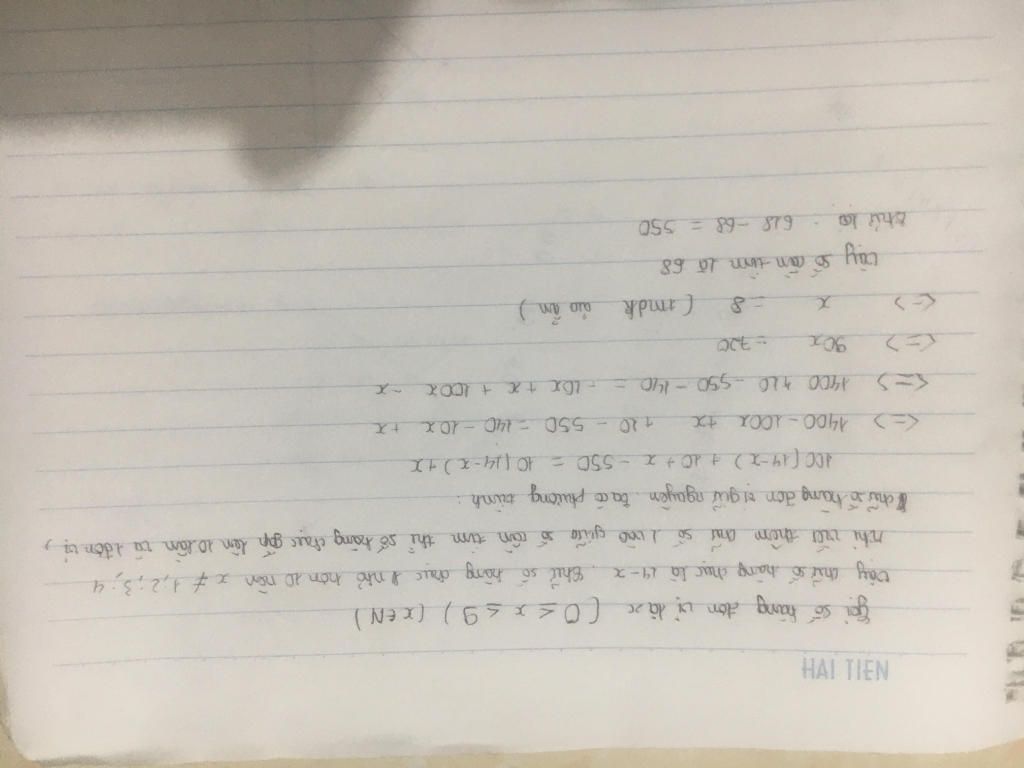 HAI TIEN
Gọi số hàng đơn vị là x (0 ≤ x ≤ 9) (x∈N)
Vậy chữ số hàng chục là 14-x. Chữ số hàng chục nhỏ hơn 10 nên x ≠ 1; 2; 3; 4
Khi viết thêm chữ số 1 vào giữa số cần tìm thì số hàng chục gấp lên 10 lần và 1 đơn vị,
chữ số hàng đơn vị giữ nguyên. Ta có phương trình:
100(14-x) + 10 + x - 550 = 10(14-x) + x
<=> 1400 - 100x + x + 10 - 550 = 140 - 10x + x
<=> 1400 + 10 - 550 - 140 = -10x + x + 100x - x
<=> 90x = 720
<=> x = 8 (tmđk của ẩn)
Vậy số cần tìm là 68
Thử lại: 618 - 68 = 550